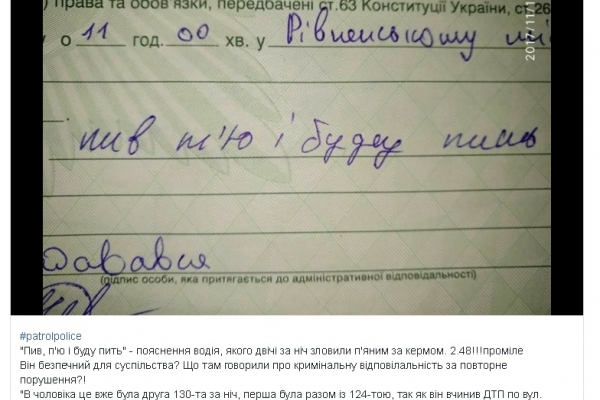 ) права та обов'язки, передбачені ст.63 Конституції України, ст.26
о 11 год. 00 хв. у Рівненському
пив п'ю і буду пить
(підпис особи, яка притягається до адміністративної відповідальності)
#patrolpolice
"Пив, п'ю і буду пить" - пояснення водія, якого двічі за ніч зловили п'яним за кермом. 2.48!!!проміле
Він безпечний для суспільства? Що там говорили про кримінальну відповілальність за повторне
порушення?!
"В чоловіка це вже була друга 130-та за ніч, перша була разом із 124-тою, так як він вчинив ДТП по вул.